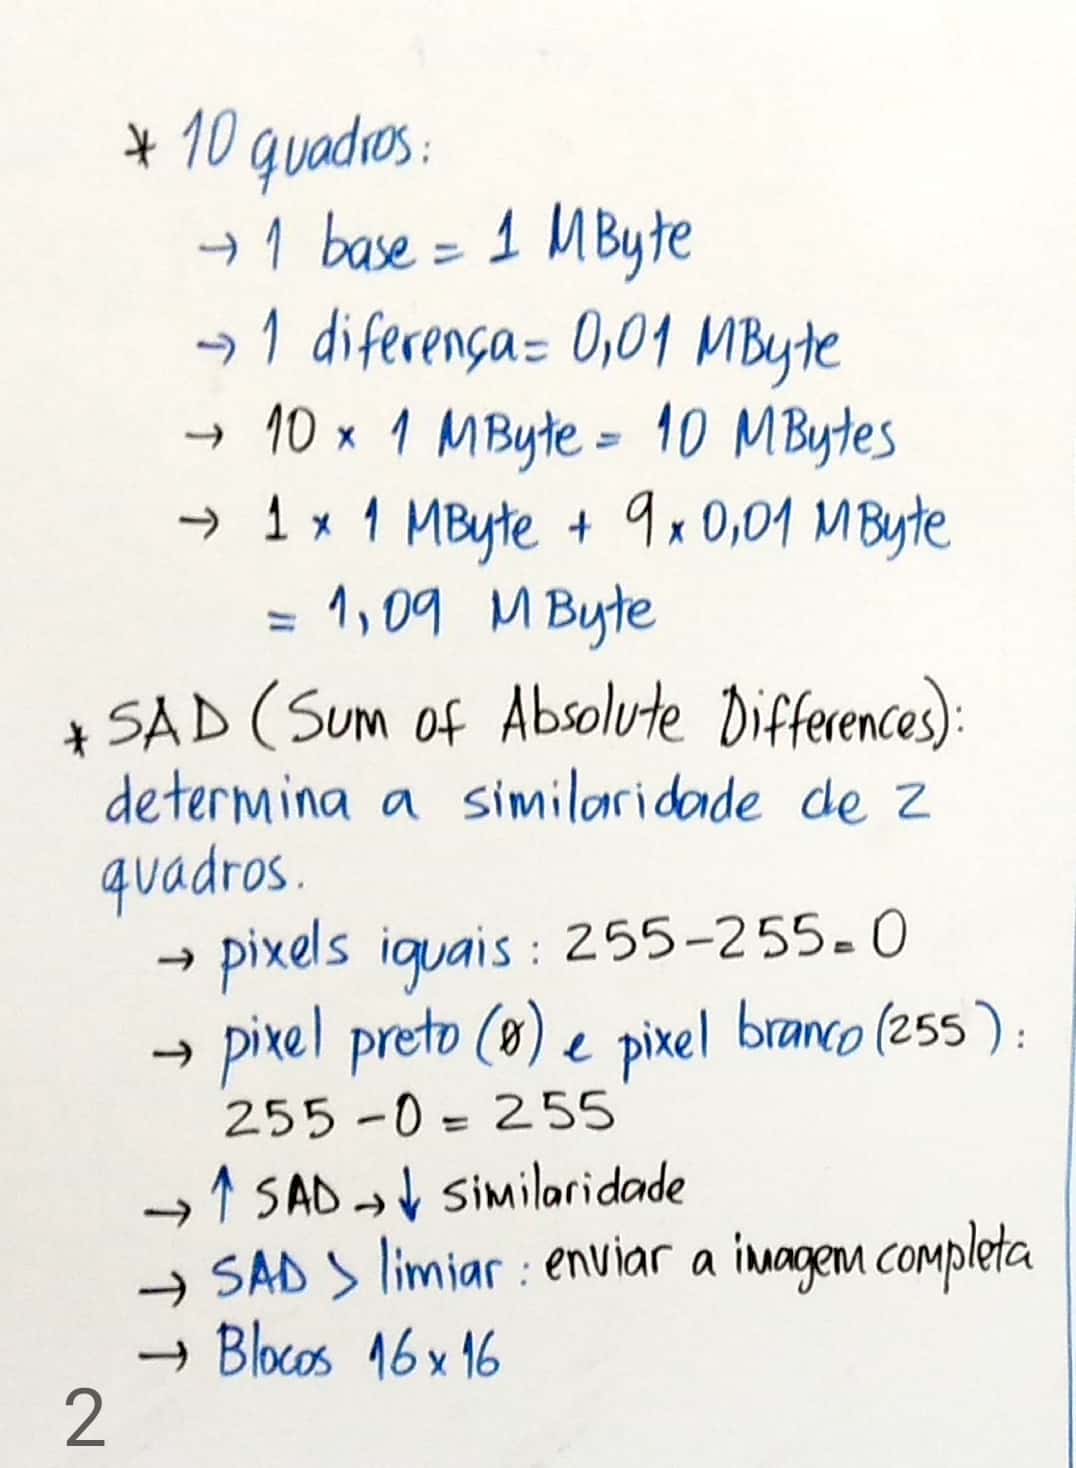 * 10 quadros:
→ 1 base = 1 MByte
→ 1 diferença = 0,01 MByte
→ 10 x 1 MByte = 10 MBytes
→ 1 x 1 MByte + 9 x 0,01 MByte
= 1,09 MByte
* SAD (Sum of Absolute Differences):
determina a similaridade de 2
quadros.
→ pixels iguais: 255-255 = 0
→ pixel preto (0) e pixel branco (255):
255 - 0 = 255
→ ↑ SAD → ↓ similaridade
→ SAD > limiar: enviar a imagem completa
→ Blocos 16 x 16
2